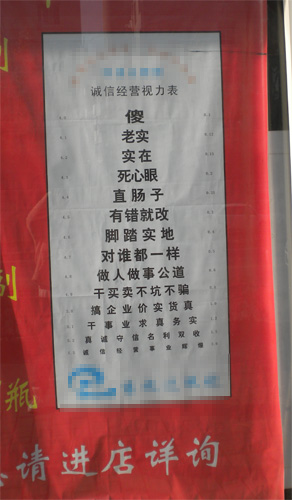 诚信经营视力表
傻
老实
实在
死心眼
直肠子
有错就改
脚踏实地
对谁都一样
做人做事公道
干买卖不坑不骗
搞企业价实货真
干事业求真务实
真诚守信名利双收
诚信经营事业辉煌
瓶
请进店详询